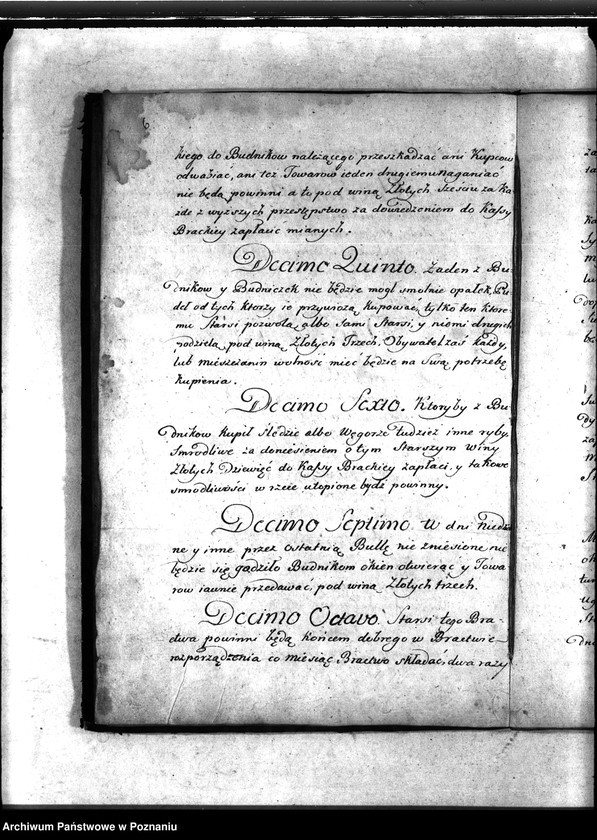 6
kiego do Budnikow należącego przeszkadzać ani Kupcow
odwabiac, ani też Towarow ieden drugiemu naganiać
nie będą powinni a to pod winą Złotych Sześciu za Ka-
żde z wyższych przestępstwo za dowiedzeniem do Kassy
Brackiey zapłacic mianych.
Decimo Quinto. Żaden z Bu-
dnikow y Budniczek nie będzie mogł smolnie opałek, Pu-
deł od tych ktorzy ie przywożą kupować, tylko ten ktore-
mu Starsi pozwolą, albo Sami Starsi, y niemi drugich
rodzielą, pod winą Złotych Trzech. Obywatel zaś każdy,
lub mieszczanin wolność mieć będzie na Swą potrzebę
kupienia.
Decimo Sexto. Ktoryby z Bu-
dnikow kupił Śledzie albo Węgorze tudzież inne ryby
Smrodliwe za doniesieniem o tym Starszym winy
Złotych Dziewięć do Kassy Brackiey zapłaci, y takowe
smrodliwości w rzece utopione bydź powinny.
Decimo Septimo. W dni Niedziel-
ne y inne przez ostatnią Bullę nie zniesione nie
będzie się godziło Budnikom okien otwierać y Towa-
row iawnie przedawać, pod winą Złotych trzech.
Decimo Octavo. Starsi tego Bra-
ctwa powinni będą końcem dobrego w Bractwie
rozporządzenia co miesiąc Bractwo składać, dwa razy
Archiwum Państwowe w Poznaniu